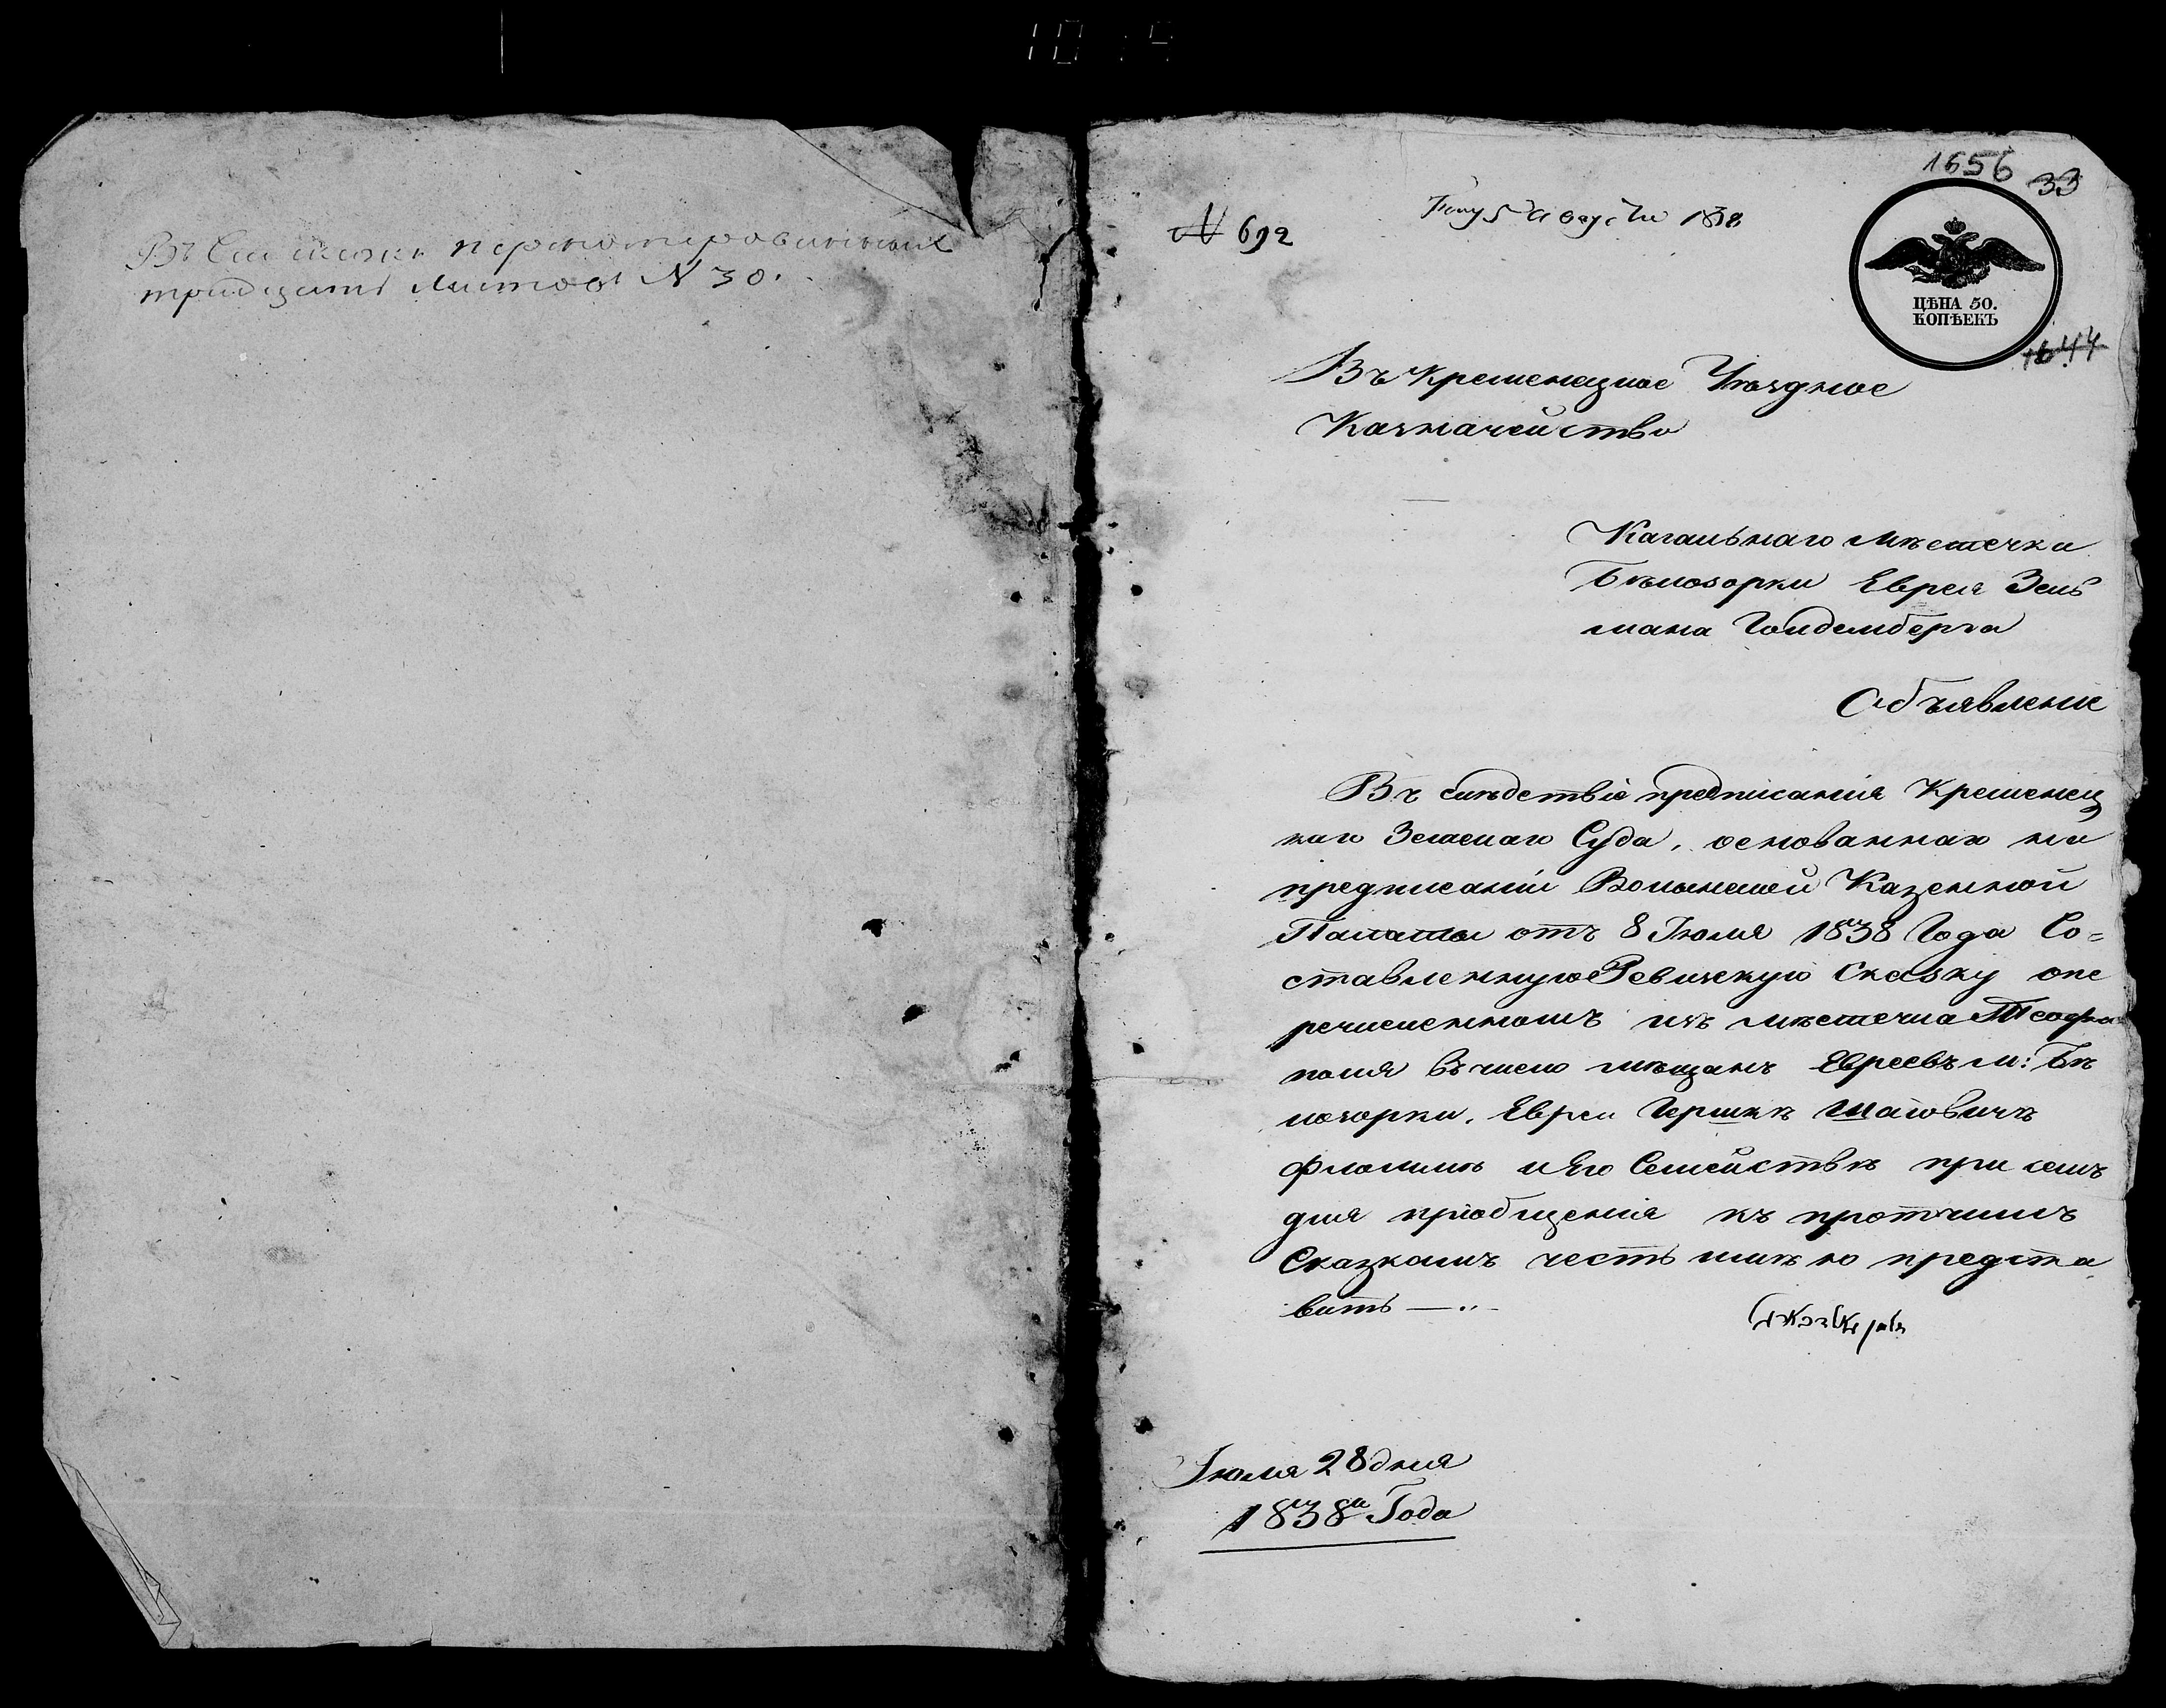 Въ сей
тридцать листовъ N 30.
1656
33
№ 692
Пол: 5 августа 1838
ЦѢНА 50.
КОПѢЕКЪ
1644
Въ Кременецкое Уѣздное
Казначейство
Кагальнаго мѣстечка
Бѣлозорки Еврея Зель
мана Гольденберга
Объявленіе
Въ слѣдствіе предписанія Кременец
каго Земскаго Суда, основаннаго на
предписаніи Волынской Казенной
Палаты отъ 8 Іюля 1838 Года Со=
ставленную Ревизскую Сказку о пе
речисленномъ изъ мѣстечка Теофи
поля въ число мѣщанъ Евреевъ м: Бѣ
лозорки, Евреи Гершкѣ Шаiовичѣ
и Его Семействѣ при семъ
для пріобщенія къ протчимъ
Сказкамъ честь имѣю предста
вить —
Іюля 28 дня
1838 Года